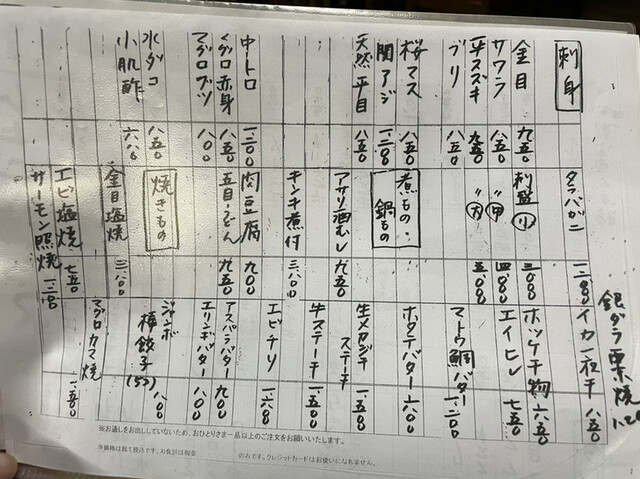 刺身
金目 九五〇
サワラ 八五〇
平スズキ 九五〇
ブリ 八五〇
桜マス 八五〇
関アジ 一、二〇〇
天然平目 八五〇
中トロ 一、二〇〇
マグロ赤身 八五〇
マグロブツ 八〇〇
水ダコ 八五〇
小肌酢 六八〇
タラバガニ 一、二〇〇
刺盛 小 三、〇〇〇
〃 中 四、〇〇〇
〃 大 五、〇〇〇
煮もの・鍋もの
アサリ酒むし 九五〇
キンキ煮付 三、八〇〇
肉豆腐 九〇〇
五目うどん 九五〇
焼きもの
金目塩焼
エビ塩焼 七五〇
サーモン照焼
銀ダラ粟焼
イカ一夜干 八五〇
ホッケ干物 六五〇
エイヒレ 七五〇
マトウ鯛バター 一、二〇〇
ホタテバター 一、六〇〇
生メカジキステーキ 一、五〇〇
牛ステーキ 一、五〇〇
エビチリ 一、六〇〇
アスパラバター 九〇〇
エリンギバター 八五〇
ジャンボ棒餃子(5コ) 八〇〇
マグロカマ焼 一、五〇〇
※お通しをお出ししていないため、おひとりさま一品以上のご注文をお願いいたします。
※価格は税て税込です。お会計は現金のみです。クレジットカードはお使いになれません。